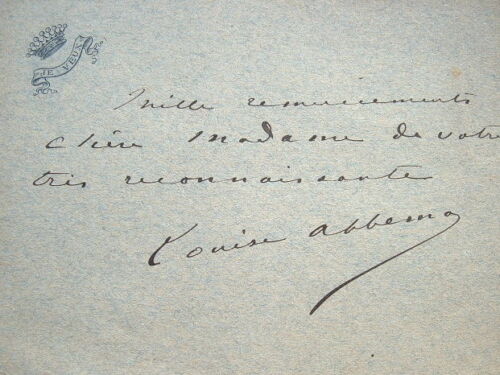 JE VEUX
Mille remerciements
chère Madame de votre
très reconnaissante
Louise Abbema